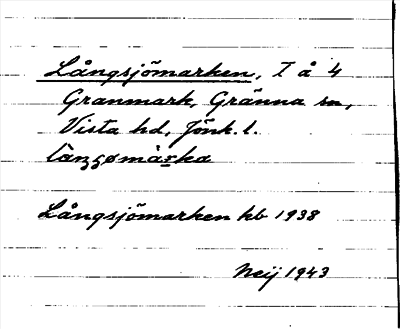 Långsjömarken, T å 4
Granmark, Gränna sn,
Vista hd, Jönk. l.

Långsjömarken kb 1938
Neij 1943